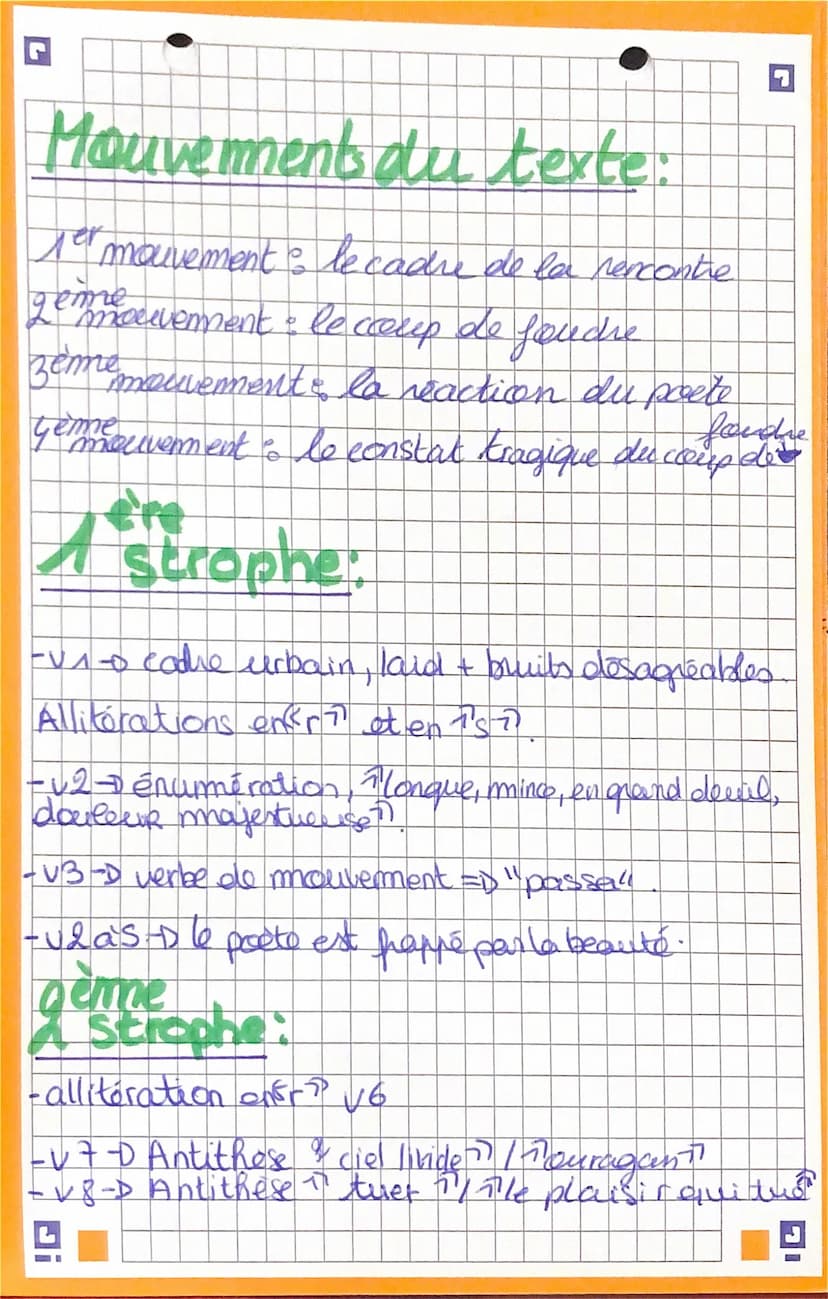 Mouvements du texte:
1er mouvement : le cadre de la rencontre
2ème mouvement : le coup de foudre
3ème mouvement : la réaction du poète
4ème mouvement : le constat tragique du coup de foudre
1ère strophe:
-V1→ cadre urbain, laid + bruits désagréables.
Allitérations en «r» et en «s».
-v2→ énumération, «longue, mince, en grand deuil,
douleur majestueuse».
-V3→ verbe de mouvement => "passa".
-V2 à 5→ le poète est frappé par la beauté.
2ème strophe:
-allitération en «r» V6
-V7→ Antithèse « ciel livide » / «ouragan»
-V8→ Antithèse « tuer » / «le plaisir qui tue»